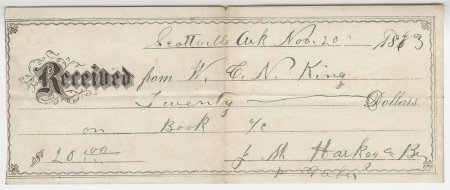 Scottville Ark Nov. 20 1883
Received from W. C. N. King
Twenty Dollars.
on Book a/c
$ 20 00 J M Harkey & Br